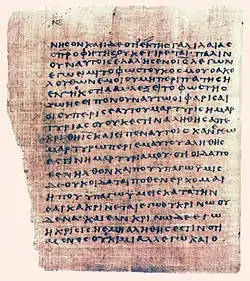 ΝΒ
ΝΗϹΟΝΚΑΙΙΔΕΟΤΙΕΚΤΗϹΓΑΛΙΛΑΙΑϹ
ΟΠΡΟΦΗΤΗϹΟΥΚΕΓΕΙΡΕΤΑΙ· ΠΑΛΙΝ
ΟΥΝΑΥΤΟΙϹΕΛΑΛΗϹΕΝΟΙϹΛΕΓΩΝ
ΕΓΩΕΙΜΙΤΟΦΩϹΤΟΥΚΟϹΜΟΥΟΑΚΟ
ΛΟΥΘΩΝΕΜΟΙΟΥΜΗΠΕΡΙΠΑΤΗϹΗ
ΕΝΤΗϹΚΟΤΙΑΑΛΛΕΞΕΙΤΟΦΩϹΤΗϹ
ΖΩΗϹΕΙΠΟΝΟΥΝΑΥΤΩΟΙΦΑΡΙϹΑΙ
ΟΙϹΥΠΕΡΙϹΕΑΥΤΟΥΜΑΡΤΥΡΕΙϹΗΜΑΡ
ΤΥΡΙΑϹΟΥΟΥΚΕϹΤΙΝΑΛΗΘΗϹΑΠΕ
ΚΡΙΘΗΙϹΚΑΙΕΙΠΕΝΑΥΤΟΙϹΚΑΝΕΓΩ
ΜΑΡΤΥΡΩΠΕΡΙΕΜΑΥΤΟΥΑΛΗΘΗϹ
ΕϹΤΙΝΗΜΑΡΤΥΡΙΑΜΟΥΟΤΙΟΙΔΑΠΟ
ΘΕΝΗΛΘΟΝΚΑΙΠΟΥΥΠΑΓΩΥΜΕΙϹ
ΔΕΟΥΚΟΙΔΑΤΕΠΟΘΕΝΕΡΧΟΜΑΙ
ΗΠΟΥΥΠΑΓΩΥΜΕΙϹΚΑΤΑΤΗΝ
ϹΑΡΚΑΚΡΙΝΕΤΑΙΕΓΩΟΥΚΡΙΝΩΟΥ
ΔΕΝΑ· ΚΑΙΕΑΝΚΡΙΝΩΔΕΕΓΩ
ΗΚΡΙϹΙϹΗΕΜΗΑΛΗΘΗϹΕϹΤΙΝΟΤΙ
ΜΟΝΟϹΟΥΚΕΙΜΙΑΛΛΕΓΩΚΑΙΟ